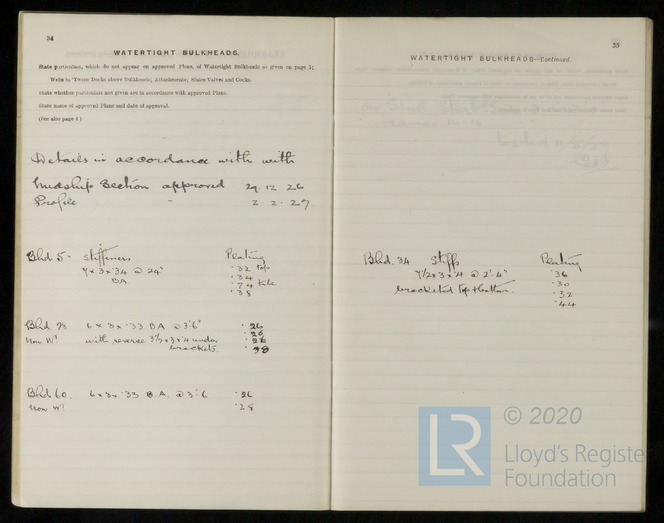 34
WATERTIGHT BULKHEADS.
State particulars, which do not appear on approved Plans, of Watertight Bulkheads as given on page 5;
Webs in 'Tween Decks above Bulkheads; Attachments; Sluice Valves and Cocks.
State whether particulars not given are in accordance with approved Plans.
State name of approved Plans and date of approval.
(See also page 4)
Details in accordance with with
Midship Section approved 29.12.26
Profile " 2.2.27
Blhd 5 - Stiffeners Plating
7 x 3 x .34 @ 24" .32 top
BA. .34
.38
Blhd 28 6 x 3 x .33 BA @ 3'6" .26
Non WT with reverse 3½ x 3 x .4 under .26
brackets
Blhd 60. 6 x 3 x .33 B.A. @ 3'.6 .26
Non WT .28
35
WATERTIGHT BULKHEADS—Continued.
Blhd. 34 Stiffs Plating
7½ x 3 x .4 @ 2'.4" .36
bracketed top & bottom. .30
.32
.44
LR
© 2020
Lloyd's Register
Foundation